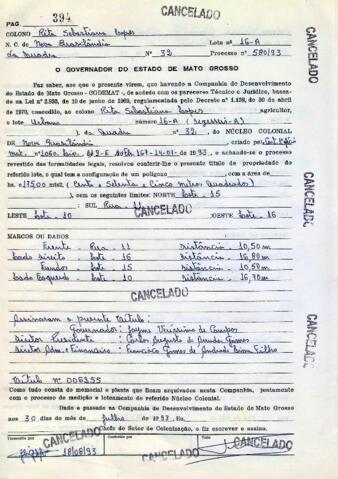 PAG 394
CANCELADO
COLONO Rita Sebastiana Lopes
N. C. de Nova Brasilândia Lote nº 16-A
da Quadra Nº 32 Processo nº 580/93
O GOVERNADOR DO ESTADO DE MATO GROSSO
Faz saber, aos que a presente virem, que havendo a Companhia de Desenvolvimento
do Estado de Mato Grosso - CODEMAT, de acordo com os pareceres Técnico e Jurídico, baseados
na Lei nº 2.933, de 10 de junho de 1969, regulamentada pelo Decreto nº 1.138, de 30 de abril
de 1970, concedido ao colono Rita Sebastiana Lopes agricultor,
o lote Urbano número 16-A
, da Quadra nº 32, do NÚCLEO COLONIAL
DE NOVA BRASILÂNDIA, criado pela
mat. nº 1060 14-01-1993, e achando-se o processo
revestido das formalidades legais, resolveu conferir-lhe o presente título de propriedade do
referido lote, o qual tem a configuração de um polígono com a área de
175,00 mts² (Cento e Setenta e Cinco Metros Quadrados)
, com os seguintes limites: NORTE Lote 15
SUL Rua 11
LESTE Lote 10 OESTE Lote 16
CANCELADO
MARCOS OU DADOS
Frente - Rua 11 distância - 10,50m
Lado direito - Lote 16 distância - 16,80m
Fundos - Lote 15 distância - 10,50m
Lado Esquerdo - Lote 10 distância - 16,70m
CANCELADO
Assinaram o presente título:
Governador: Jayme Veríssimo de Campos
Diretor Presidente: Carlos Augusto de Arruda Gomes
Diretor Adm. e Financeiro: Francisco Gomes de Andrade Lima Filho
Título Nº 006355
Como tudo consta do memorial e planta que ficam arquivados nesta Companhia, juntamente
com o processo de medição e loteamento do referido Núcleo Colonial.
Dado e passado na Companhia de Desenvolvimento do Estado de Mato Grosso
aos 30 dias do mês de Julho de 1993, Eu
Chefe do Setor de Colonização, o fiz escrever e assino.
CANCELADO
18/08/93
CANCELADO
CANCELADO
CANCELADO